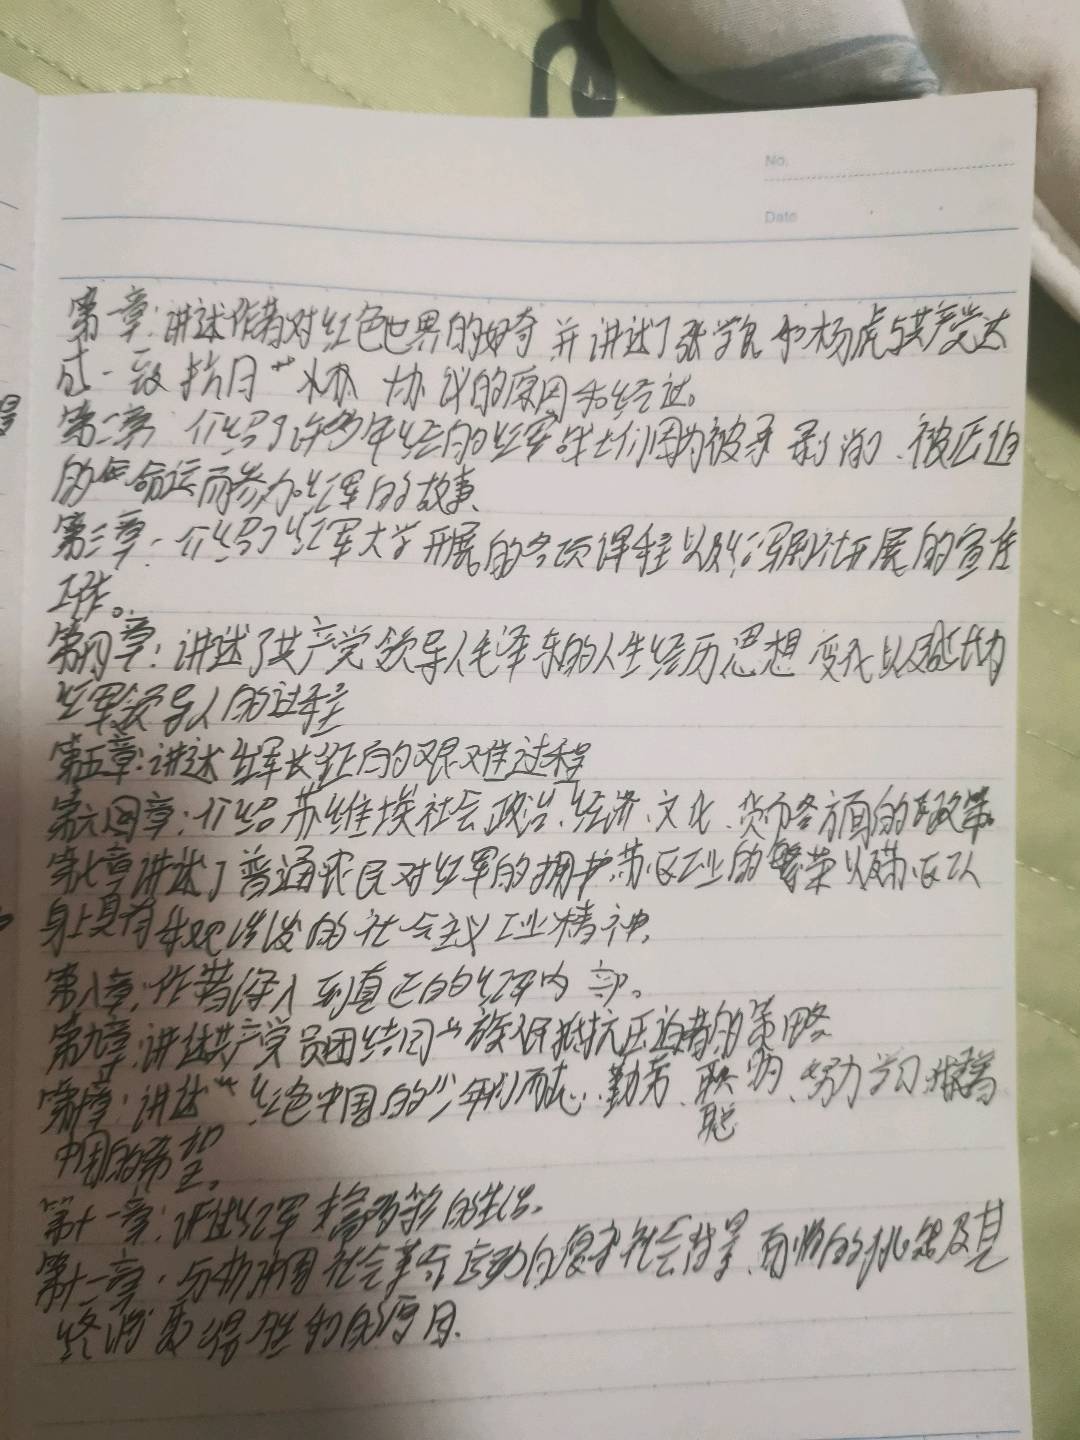 No.
Date
第一章:讲述作者对红色世界的好奇并讲述了张学良和杨虎与共产党达
成一致抗日 协议的原因和经过。
第二章 介绍了许多年轻的红军战士们因为被 剥削、被压迫
的 命运而参加红军的故事、
第三章·介绍了红军大学开展的各项课程以及红军剧社开展的宣传
工作。
第四章:讲述了共产党领导人毛泽东的人生经历思想变化以及 成为
红军领导人的过程
第五章:讲述红军长征的艰难过程
第六 章:介绍苏维埃社会政治、经济、文化、货币各方面的政策。
第七章讲述了普通农民对红军的拥护苏区工业的繁荣以及苏区工人
身上具有 的社会主义工业精神,
第八章:作者深入到真正的红军内部。
第九章:讲述共产党员团结回族人民抵抗压迫者的策略
第十章:讲述 红色中国的少年们 、勤劳、聪明、努力学习
聪
中国的希望。
第十一章:讲述红军 多彩的生活。
第十二章· 中国社会革命运动的复杂社会背景、面临的挑战及其
终将取得胜利的原因.